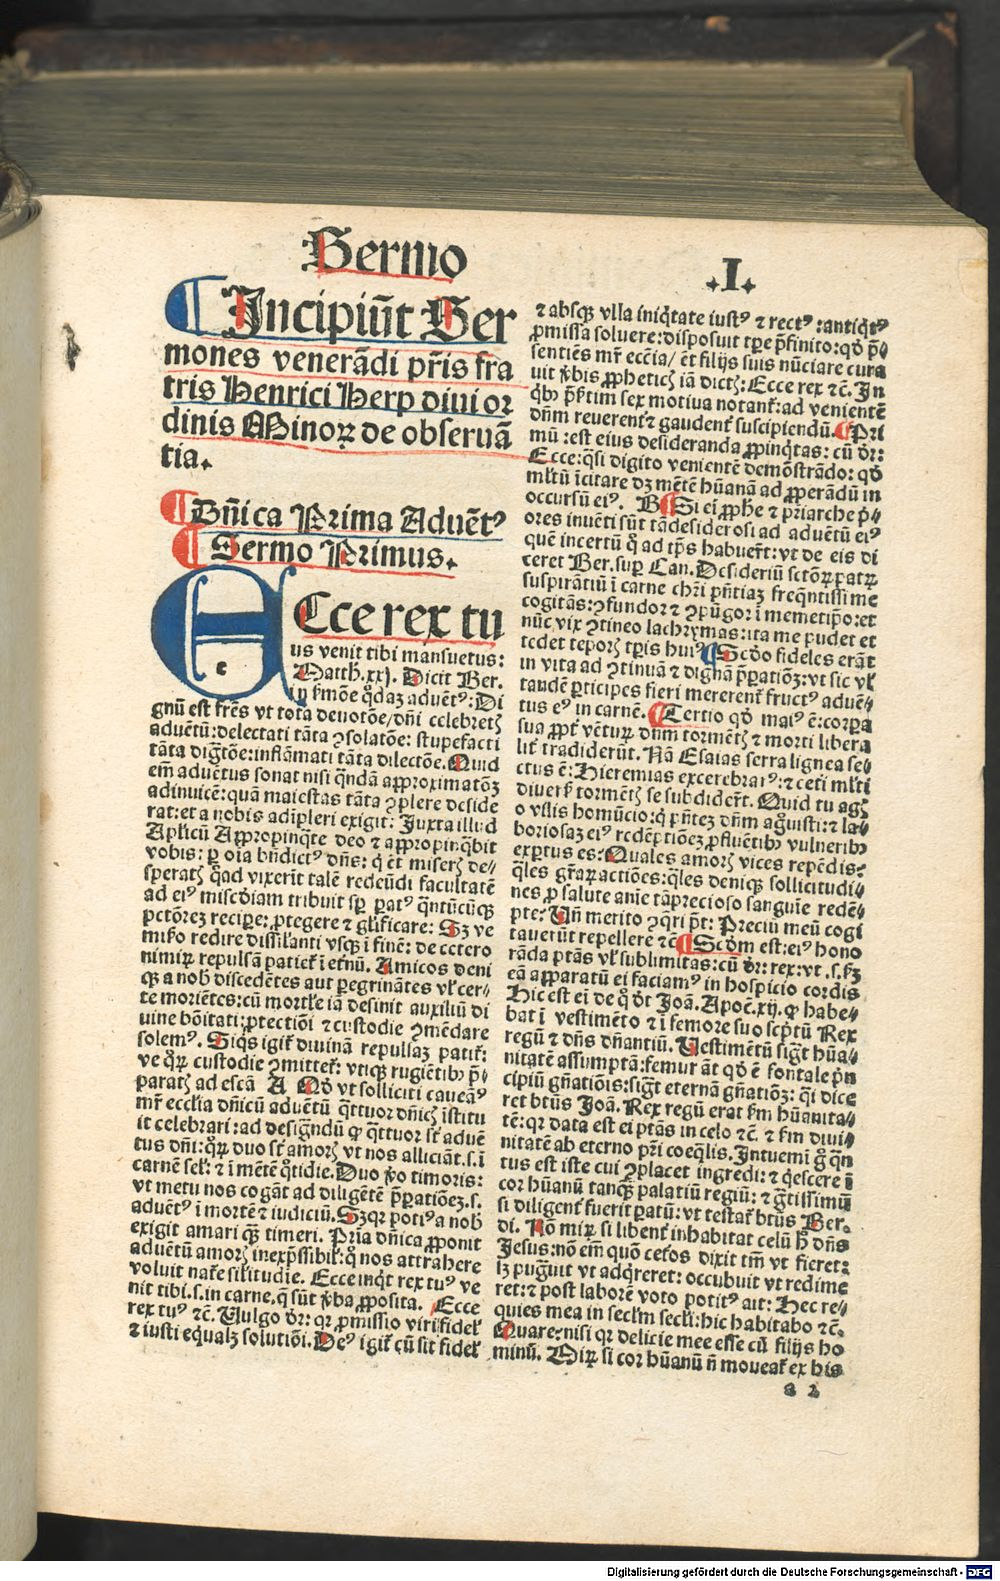 Sermo
.I.
¶Incipiu͂t Ser
mones venera͂di pr͂is fra
tris Henrici Herp diui or
dinis Minorꝝ de obserua͂
tia.
¶Dn͂ica Prima Aduēt⁹
¶Sermo Primus.
ECce rex tu
us venit tibi mansuetus:
Matth.xxj. Dicit Ber.
in ẜmōe q̊daꝫ aduēt⁹: Di
gnū est fr̄es vt tota deuotōe/dn̄i celebretꝭ
aduētū: delectati tāta ꝯsolatōe: stupefacti
tāta diḡtōe: inflāmati tāta dilectōe. Quid
em̄ aduētus sonat nisi q̄ndā approximatōꝫ
adinuicē: quā maiestas tāta ꝯplere deside
rat: et a nobis adipleri exigit: Juxta illud
Aplicū Appropinq̄te deo ⁊ appropinq̄bit
vobis: ꝑ oīa bn̄dict⁹ dn̄s: q̇ et miserꝭ de-
speratꝭ q̄ad vixerīt talē redeūdi facultatē
ad ei⁹ miscd̄iam tribuit sꝑ pat⁹ q̄ntūcūqꝫ
pctōreꝫ recipe: ꝓtegere ⁊ gl̄ificare: Sꝫ ve
mūdo redire dissilanti vsqꝫ ī finē: de cetero
nimiꝝ repulsā patieẗ ī et̄nū. Amicos deni
qꝫ a nob̄ discedētes aut peregrinātes vl̄ cer-
te moriētes: cū mortl̄e iā desinit auxiliū di
uine bōitati: ꝓtectiōi ⁊ custodie ꝯmēdare
solem⁹. Siq̇s igit̄ diuinā repulsaꝫ patit̄:
ve q̊ꝝ custodie ꝯmittet̄: vtiqꝫ rugiētibꝰ p̄-
paratꝭ ad escā A Qd̄ vt solliciti caueam⁹
mr̄ eccl̄ia dn̄icū aduētū q̄ttuor dn̄icꝭ īstitu
it celebrari: ad desiḡndū qꝫ q̄ttuor sт̄ aduē
tus dn̄i: q̊ꝝ duo sт̄ amorꝭ vt nos alliciāt.s.ī
carnē sel̄: ⁊ ī mētē q̊tidie. Duo v̊o timoris:
vt metu nos cogāt ad diligētē p̄ꝑatiōeꝫ.s.
aduēt⁹ ī mortē ⁊ iudiciū. Sꝫ qꝛ poti⁹ a nob̄
exigit amari qꝫ timeri. Pria dn̄ica ꝓponit
aduētū amorꝭ inexp̄ssibil̄: q̊ nos attrahere
voluit nat̄e sil̄itudie. Ecce inq̇t rex tu⁹ ve
nit tibi.s.in carne. q̄ sūt v̄ba ꝓposita. Ecce
rex tu⁹ ⁊c̄. Uulgo dr̄: qꝛ ꝓmissio viri fidel̄
⁊ iusti equalꝫ solutiōi. De⁹ igit̄ cū sit fidel̄
⁊ absqꝫ vlla iniq̇tate iust⁹ ⁊ rect⁹: antiq̇t⁹
ꝓmissa soluere: disposuit tp̄e p̄finito: qd̄ p̄-
sentiēs mr̄ ecc̄ia/ ēt filijs suis nūciare cura
uit v̄bis ꝓpheticꝭ iā dictꝭ: Ecce rex ⁊c̄. In
q̇bꝰ p̄ẜtim sex motiua notant̄: ad venientē
dn̄m reuerent̄ ⁊ gaudent̄ suscipiendū. ¶Pri
mū: est eius desideranda ꝓpinq̇tas: cū dr̄:
Ecce: q̄si digito venientē demōstrādo: qd̄
ml̄tū īcitare dꝫ mētē hūanā ad ꝓperādū in
occursū ei⁹. B ¶Si ei ꝓph̄e ⁊ pr̄iarche p̄-
ores inuēti sūt tādesiderosi ad aduētū ei⁹
quē incertū q̊ ad tp̄s habuer̄t: vt de eis di
ceret Ber. suꝑ Can. Desideriū sctōꝝ patꝝ
suspirātiū ī carne chr̄i p̄ntiaꝫ freq̄ntissime
cogitās: ꝯfundor ⁊ ꝯpūgor ī memetip̄o: et
nūc vix ꝯtineo lachrymas: ita me pudet et
tedet teporꝭ tp̄ris hui⁹ ¶Scd̄o fideles erāt
in vita ad ꝯtinuā ⁊ dignā p̄ꝑatiōꝫ: vt sic vl̄
tandē ꝑticipes fieri mererent̄ fruct⁹ aduē-
tus e⁹ in carnē. ¶Tertio qd̄ mai⁹ ē: corꝑa
sua ꝓpт̄ vēturꝝ dn̄m tormētꝭ ⁊ morti libera
lit̄ tradiderūt. Nā Esaias serra lignea se-
ctus ē: Hieremias excerebrat⁹: ⁊ ceti ml̄ti
diuerẜ tormētꝭ se subdider̄t. Quid tu agꝭ
o vilis homūcio: q̇ p̄ntez dn̄m agnouisti: ⁊ la-
boriosaꝫ ei⁹ redēptiōeꝫ ꝓfluētibꝰ vulneribꝰ
expertus es: Quales amorꝭ vices repēdis:
q̄les gr̄aꝝ actiōes: q̄les deniqꝫ sollicitudi-
nes ꝓ salute anīe tāprecioso sanguīe redē-
pte: Un̄ merito ꝯq̄ri p̄t: Preciū meū cogi
tauerūt repellere ⁊c̄ ¶Scd̄m est: ei⁹ hono
rāda ptās vl̄ sublimitas: cū dr̄: rex: vt.s.ẜꝫ
eā apparatū ei faciam⁹ in hospicio cordis
Hic est ei de q̊ dr̄ Joā. Apoc̄.xij. qꝫ habe-
bat ī vestimēto ⁊ ī femore suo scp̄tū Rex
regū ⁊ dn̄s dn̄antiū. Uestimētū siḡt hūa-
nitatē assumptā: femur āt qd̄ ē fontale p̄n
cipiū gn̄atiōis: siḡt eternā gn̄atiōꝫ: q̄i dice
ret btūs Joā. Rex regū erat ẜm hūanita-
tē: qꝛ data est ei ptās in celo ⁊c̄. ⁊ ẜm diui-
nitatē ab eterno pr̄i coeq̄lis. Intuemī g̊ q̄n
tus est iste cui ꝯplacet ingredi: ⁊ q̇escere ī
cor hūanū tanqꝫ palatiū regiū: ⁊ ḡtissimū
si diligent̄ fuerit ꝑatū: vt testat̄ btūs Ber.
di. Nō mirꝝ si libent̄ inhabitat celū h̊ dn̄s
Jesus: nō em̄ quō cetos dixit tm̄ vt fieret:
lꝫ puḡuit vt adq̇reret: occubuit vt redime
ret: ⁊ post laborē voto potit⁹ ait: Hec re-
quies mea in secl̄m secl̄i: hic habitabo ⁊c̄.
Quare: nisi qꝛ delicie mee esse cū filijs ho
minū. Mirꝝ si cor hūanū n̄ moueat̄ ex his
a 2
Digitalisierung gefördert durch die Deutsche Forschungsgemeinschaft - DFG